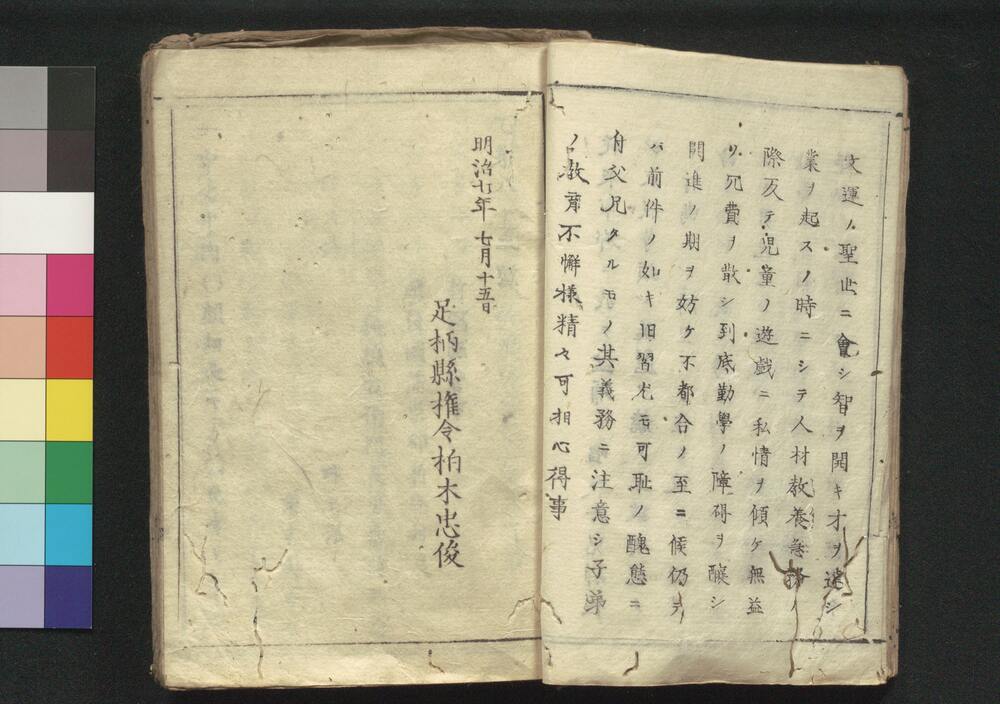 文運ノ聖世ニ會シ智ヲ開キ才ヲ達シ
業ヲ起スノ時ニシテ人材教養急務ノ
際反テ児童ノ遊戯ニ私情ヲ傾ケ無益
ノ冗費ヲ散シ到底勤學ノ障碍ヲ醸シ
開進ノ期ヲ妨ケ不都合ノ至ニ候仍テ
ハ前件ノ如キ旧習尤モ可恥ノ醜態ニ
付父兄タルモノ其義務ニ注意シ子弟
ノ教育不懈様精々可相心得事
明治七年七月十五日
足柄縣権令柏木忠俊